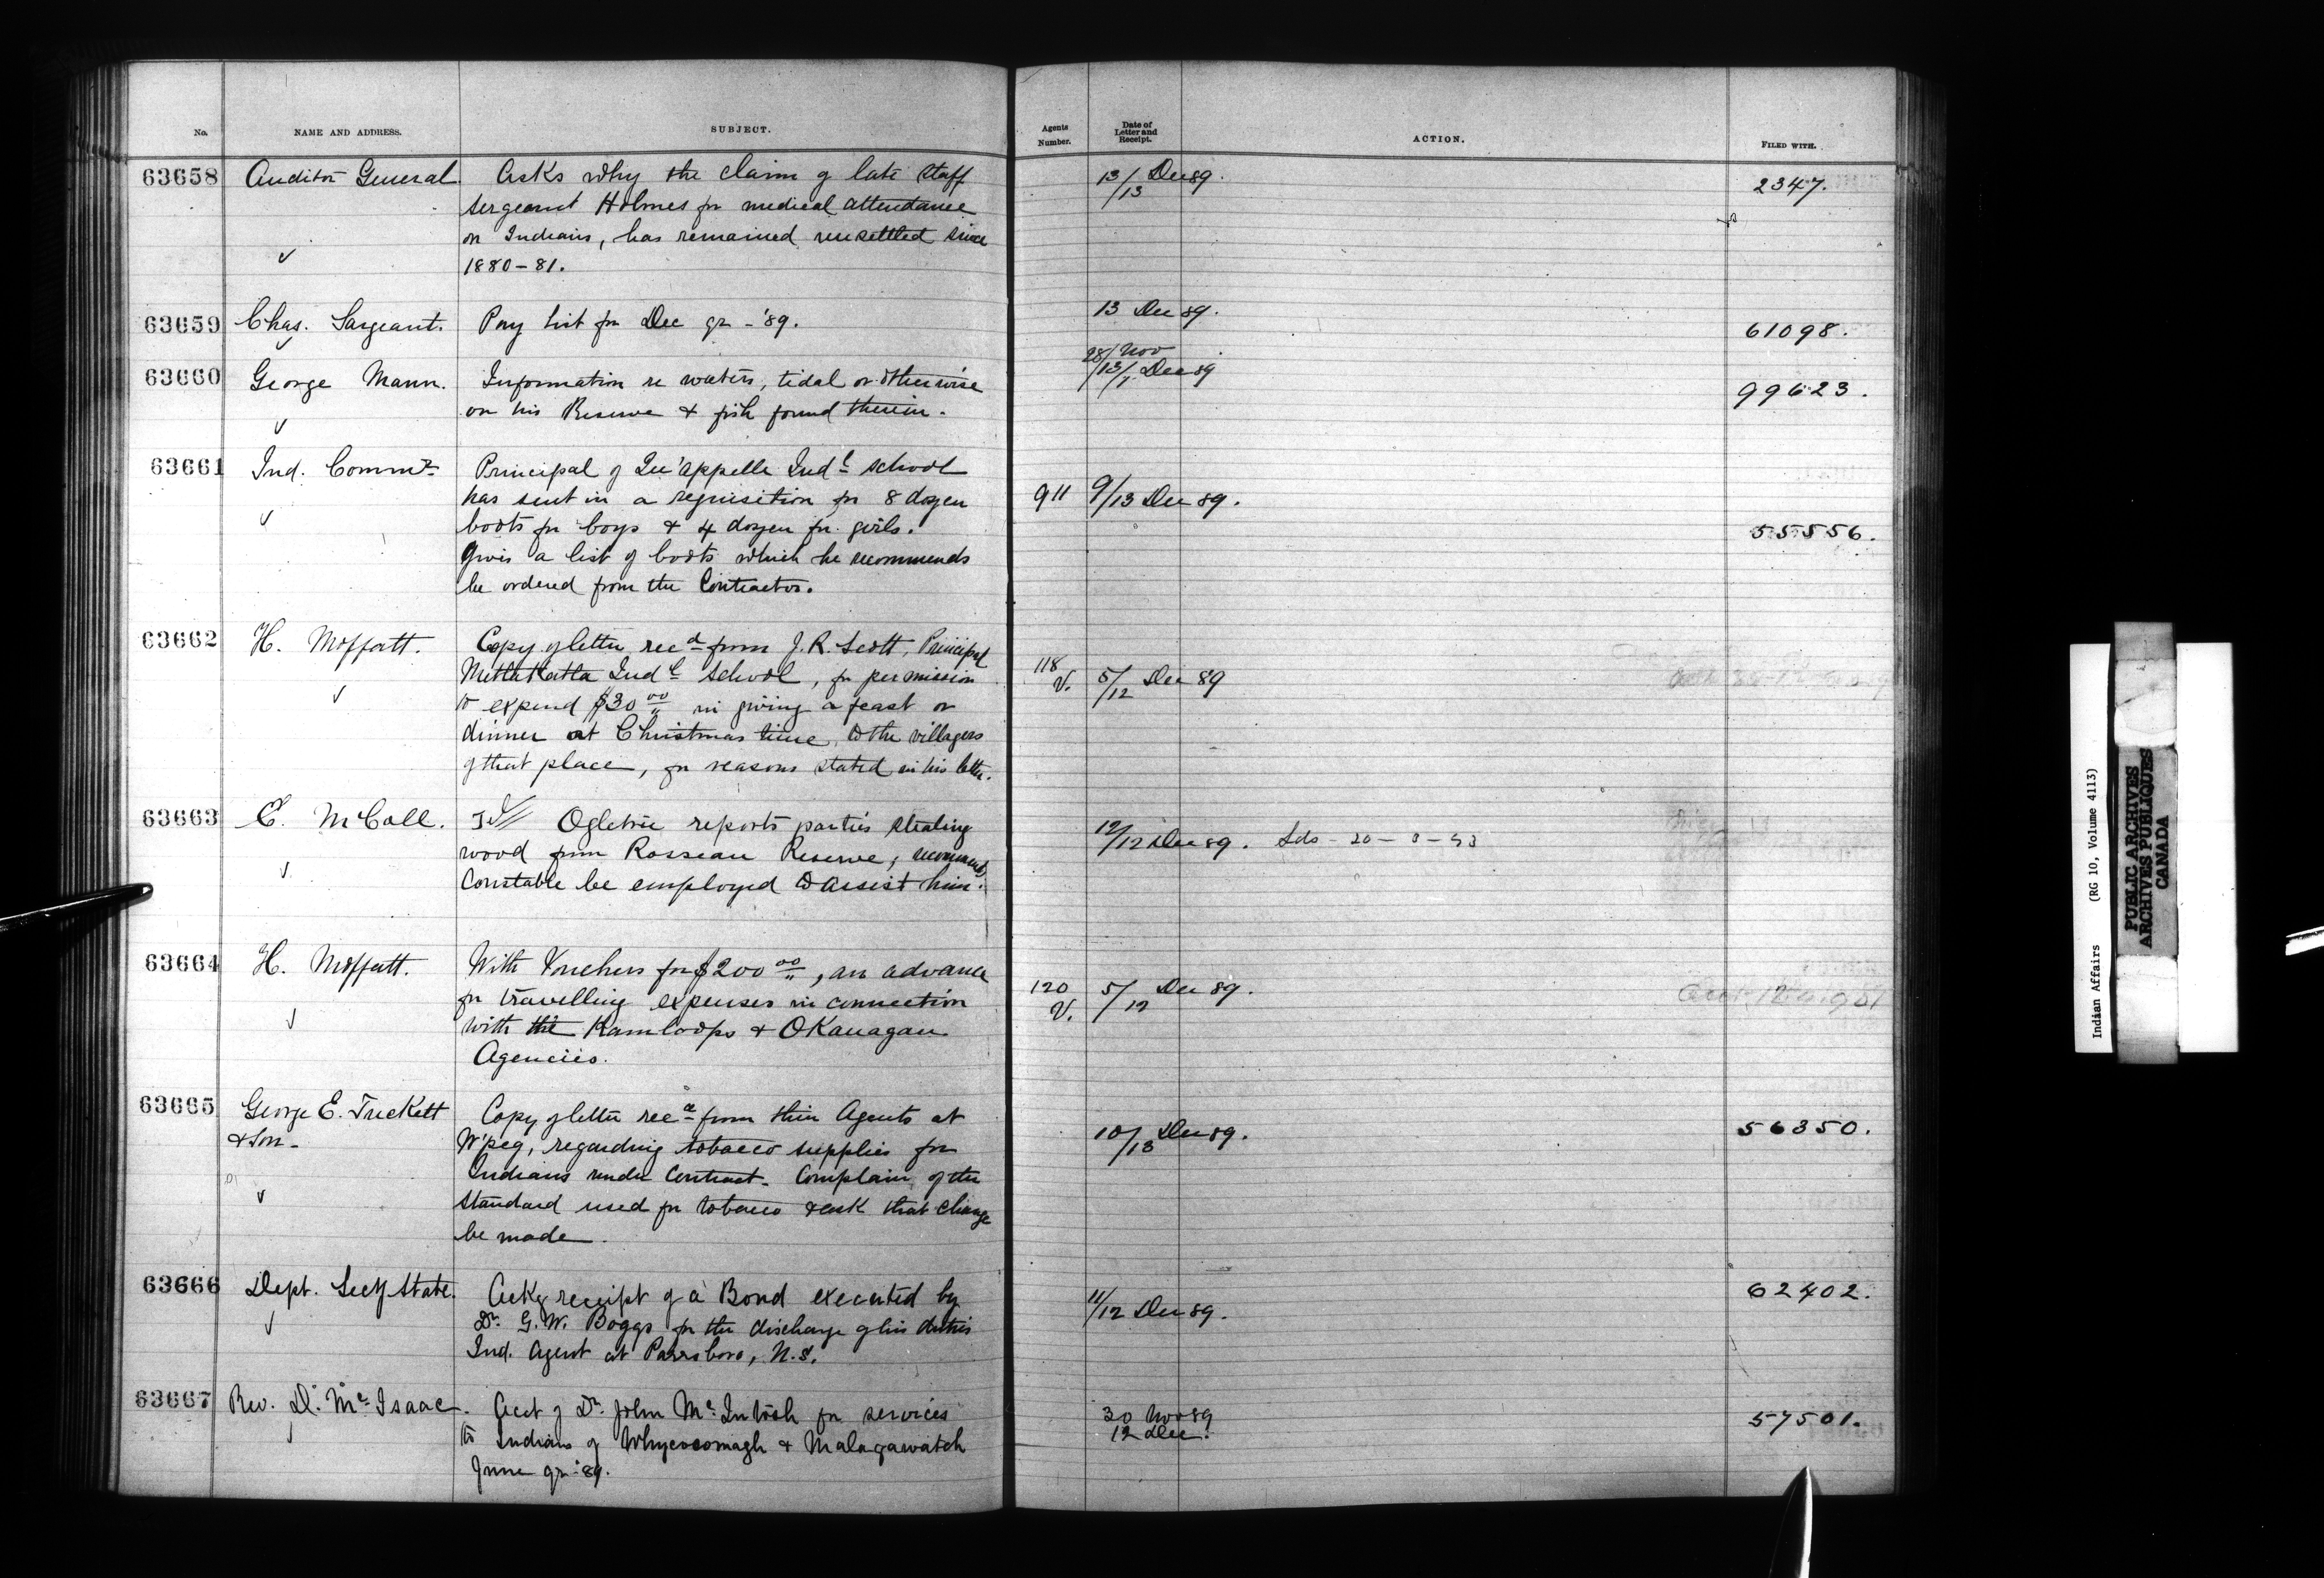 No. NAME AND ADDRESS. SUBJECT. Agents Number. Date of Letter and Receipt. ACTION. FILED WITH.
63658 Auditor General. Asks why the claim of late Staff 13/13 Dec 89. 2347.
Sergeant Holmes for medical attendance
on Indians, has remained unsettled since
1880-81.
63659 Chas. Sargeant. Pay list for Dec qr - '89. 13 Dec 89. 61098.
63660 George Mann. Information re waters, tidal or otherwise 28/Nov /13/ Dec 89 99623.
on his Reserve & fish found therein.
63661 Ind. Commr Principal of Qu'appelle Indl School
has sent in a requisition for 8 dozen 911 9/13 Dec 89.
boots for boys & 4 dozen for girls. 55556.
Gives a list of boots which he recommends
be ordered from the Contractor.
63662 H. Moffatt. Copy of letter recd from J. R. Scott, Principal
Metlakatla Indl School, for permission 118 V. 5/12 Dec 89
to expend $30 00 in giving a feast or
dinner at Christmas time, to the villagers
of that place, for reasons stated in his letter.
63663 E. McColl. Ogletree reports parties stealing 12/12 Dec 89.
wood from Rosseau Reserve, recommends
Constable be employed to assist him.
63664 H. Moffatt. With Vouchers for $200 00, an advance
for travelling expenses in connection 120 V. 5/12 Dec 89.
with the Kamloops & OKanagan
Agencies.
63665 George E. Tuckett Copy of letter recd from their Agents at
& Son - W'peg, regarding tobacco supplies for 10/13 Dec 89. 56350.
Indians under Contract. Complain of the
standard used for tobacco & ask that change
be made.
63666 Dept. Secy State. Ackg receipt of a Bond executed by 11/12 Dec 89. 62402.
Dr. G. W. Boggs for the discharge of his duties
Ind. Agent at Parrsboro, N.S.
63667 Rev. D. McIsaac. Acct of Dr. John McIntosh for services 30 Nov 89 57501.
to Indians of Whycocomagh & Malagawatch 12 Dec.
June qr '89.
Indian Affairs (RG 10, Volume 4113)
PUBLIC ARCHIVES
ARCHIVES PUBLIQUES
CANADA